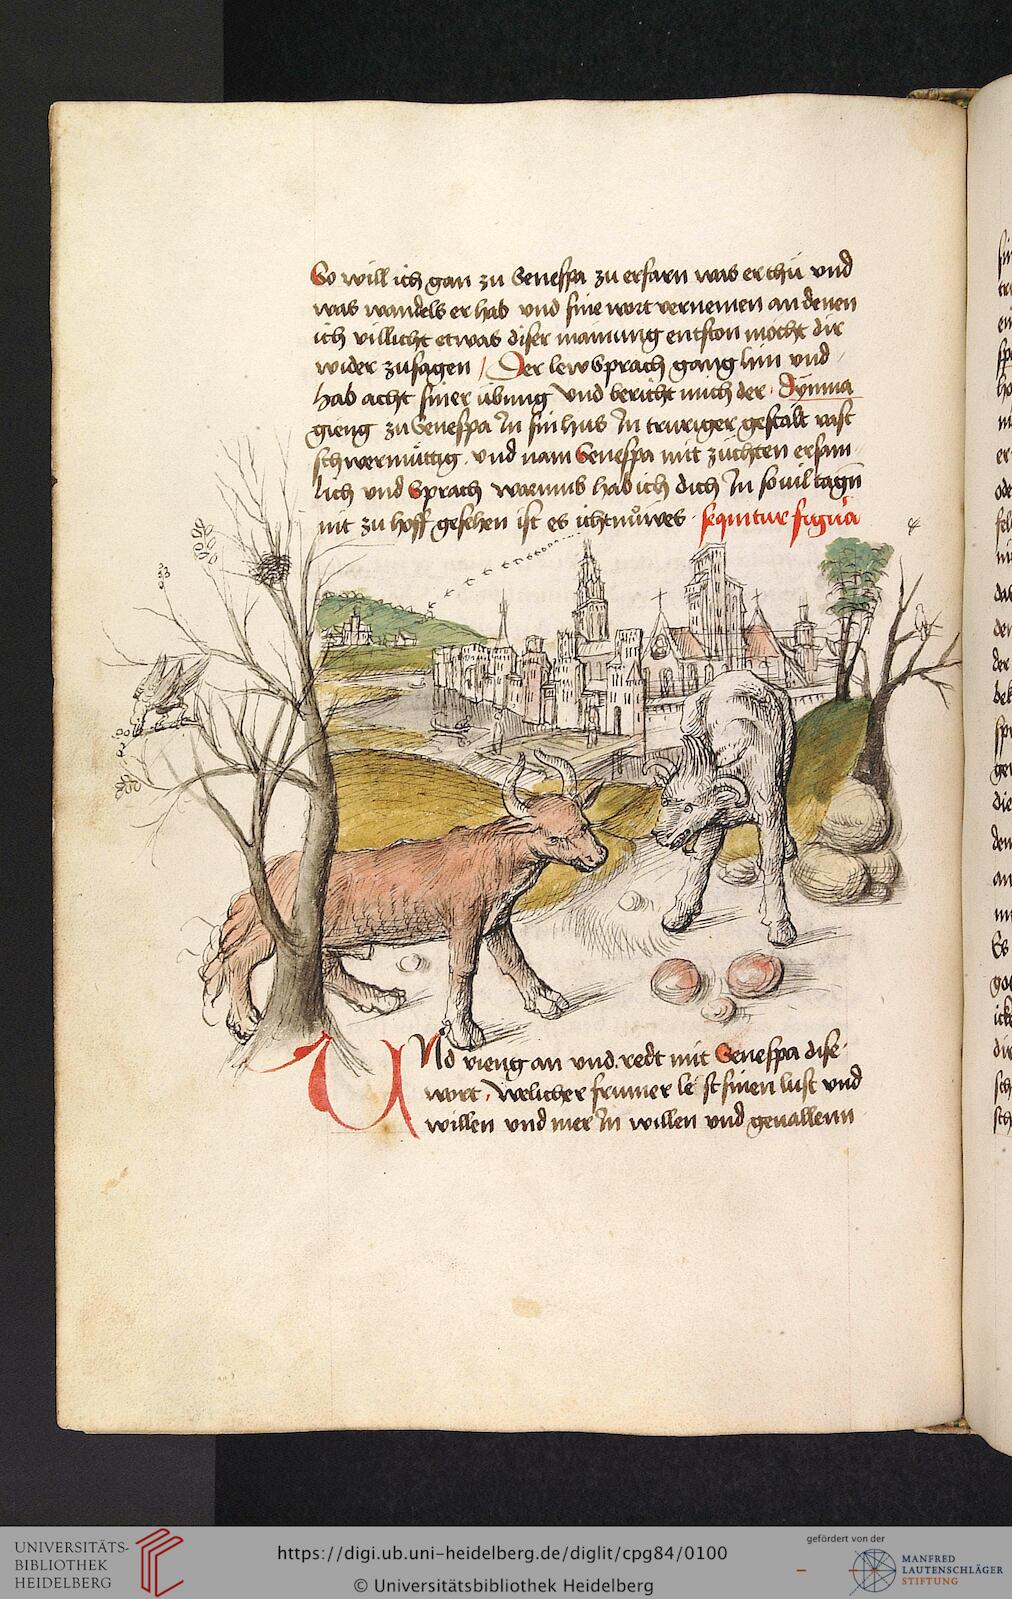 So will ich gan zu Senespa zu erfarn was er thü vnd
was wandels er hab vnd sine wort vernemen an denen
ich villicht etwas diser mainung entston möcht dir
wider zusagen / Der lew sprach gang hin vnd
hab acht siner übung vnd bericht mich der · Dÿmna
gieng zu Senespa In sin hus In truriger gestalt vast
schwermüttig · vnd nam Senespa mit züchten ersam
lich vnd sprach warumb hab ich dich In souil tagn̄
nit zu hoff gesehen ist es icht nuͦwes · sequitur figura
VNd vieng an vnd redt mit Senespa dise
wort / welicher frumer sinen lust vnd
willen vnd mer In willen vnd geuallenn
UNIVERSITÄTS-
BIBLIOTHEK
HEIDELBERG
https://digi.ub.uni-heidelberg.de/diglit/cpg84/0100
© Universitätsbibliothek Heidelberg
gefördert von der
MANFRED
LAUTENSCHLÄGER
STIFTUNG